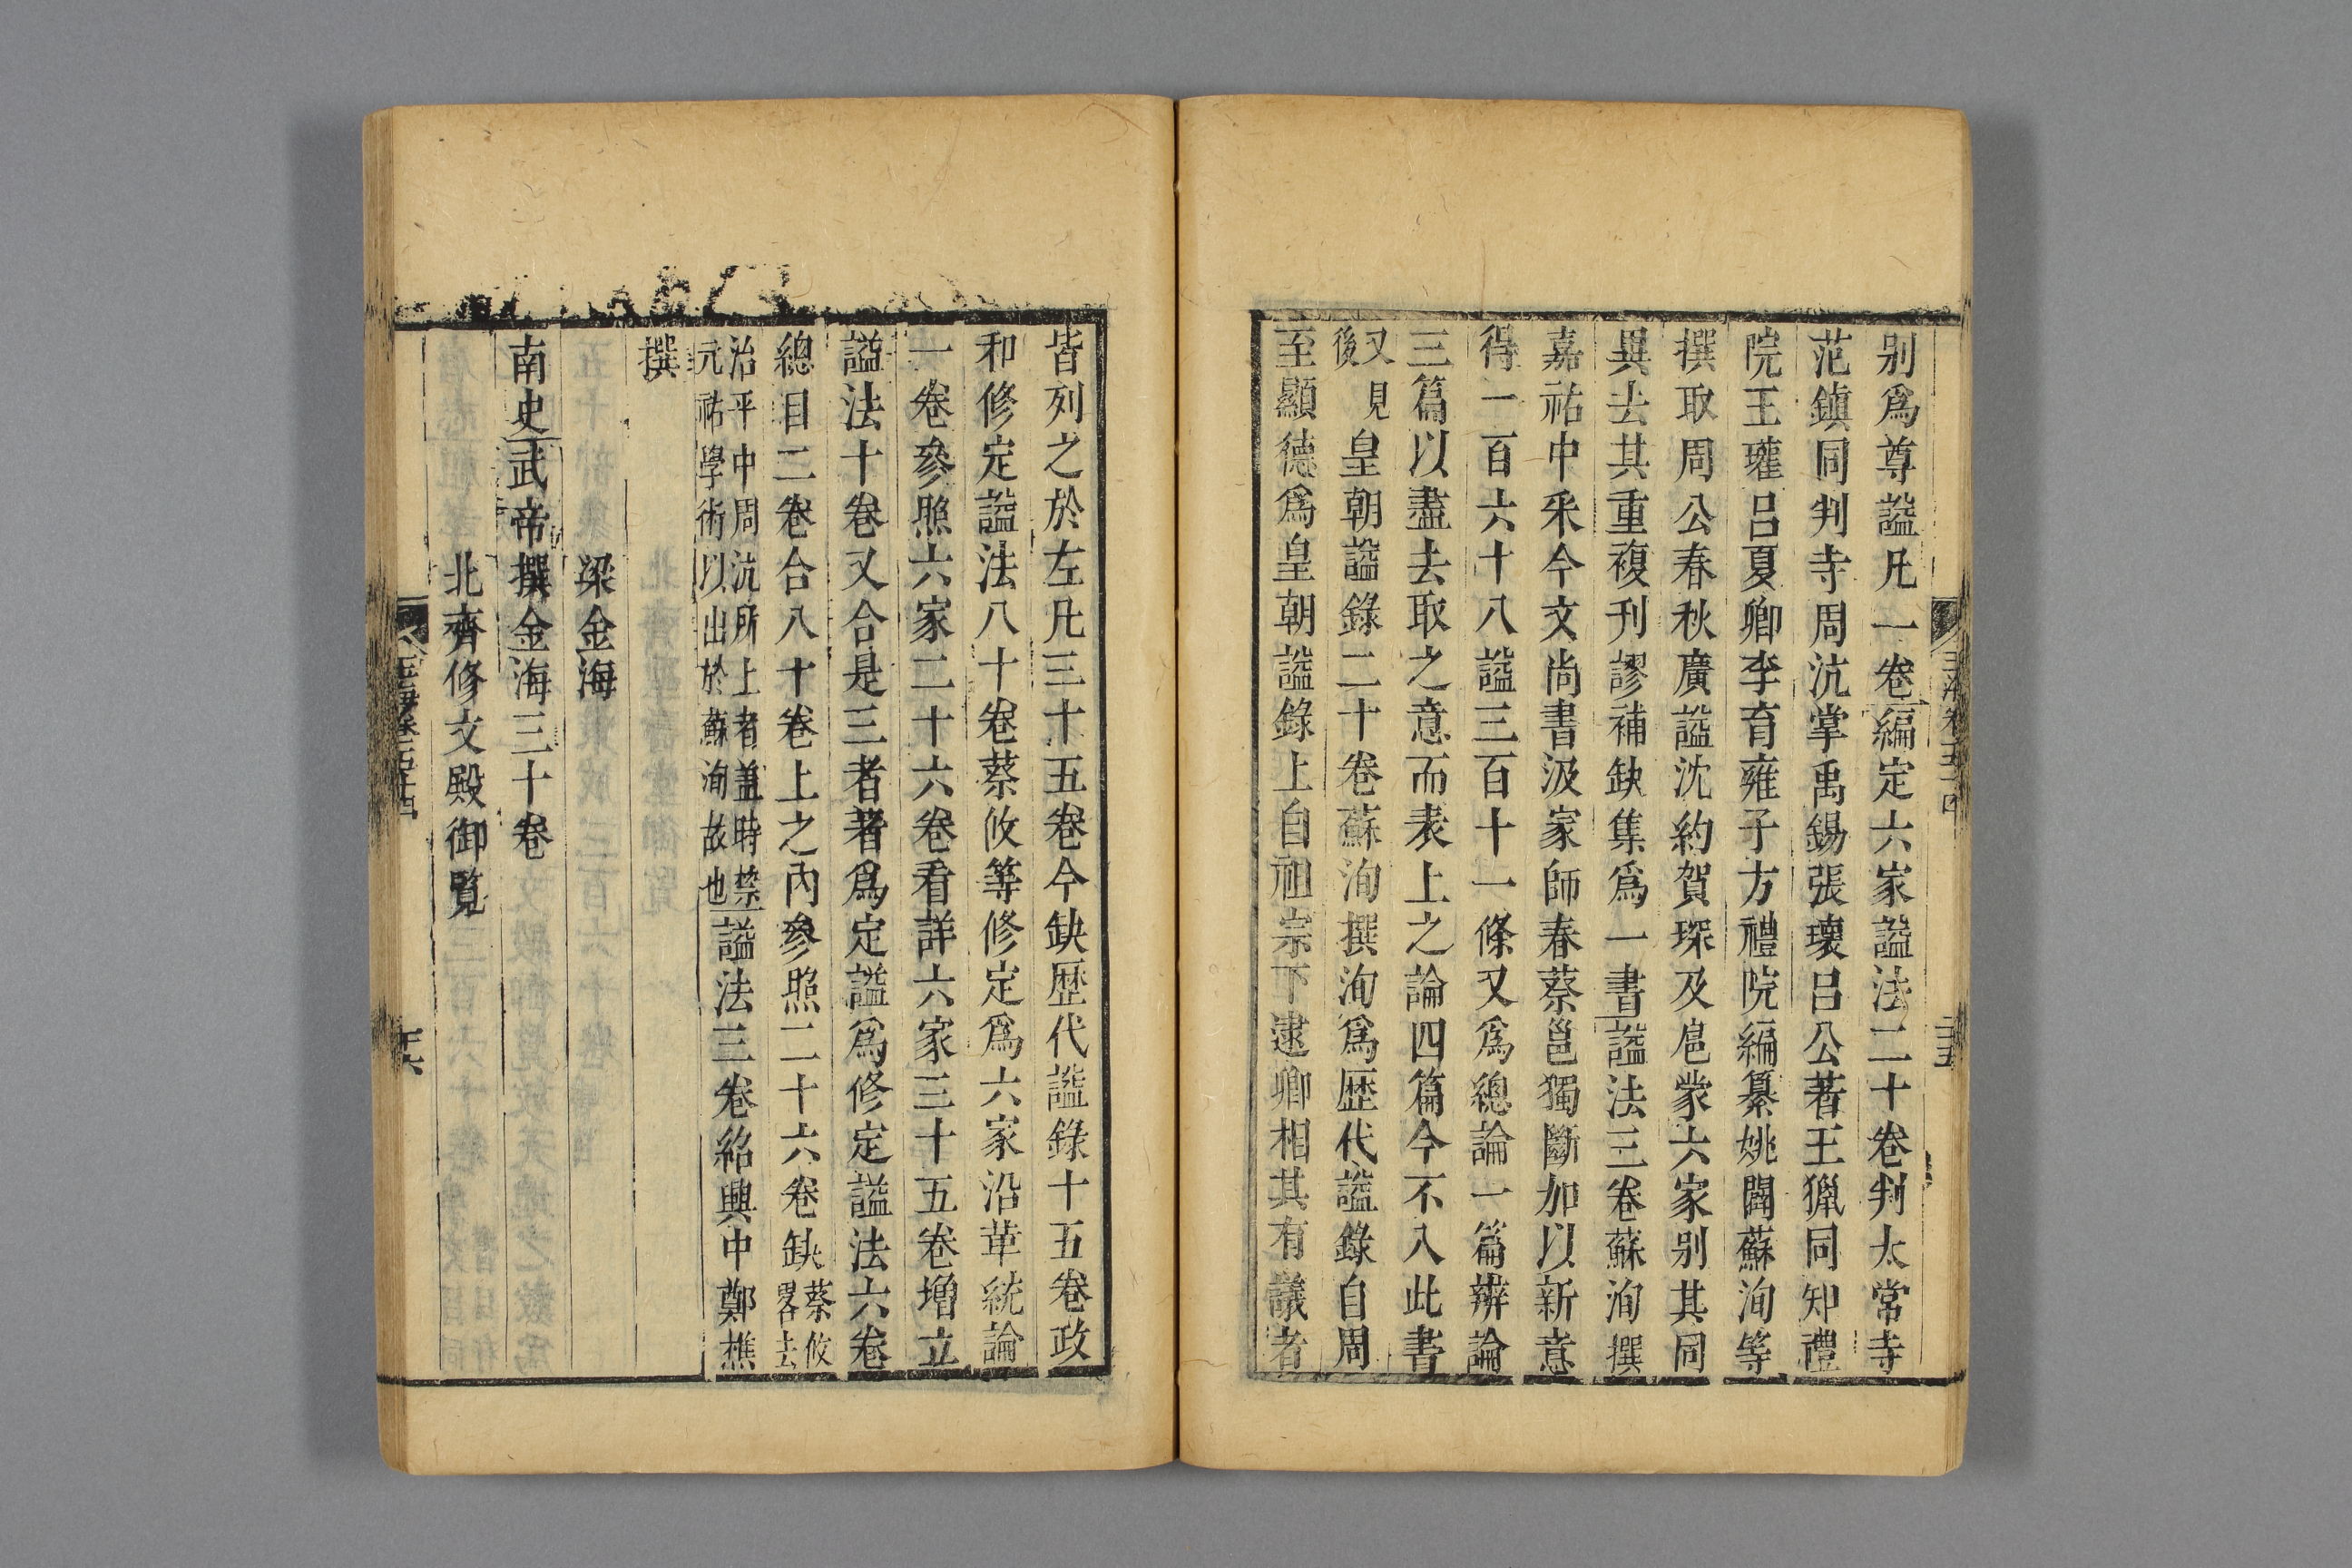 别爲尊謚凡一卷編定六家謚法二十卷判太常寺
范鎮同判寺周沆掌禹錫張瓌吕公著王獵同知禮
院王瓘吕夏卿李育雍子方禮院編纂姚闢蘇洵等
撰取周公春秋廣謚沈約賀琛及扈蒙六家别其同
異去其重複刊謬補缺集爲一書謚法三卷蘇洵撰
嘉祐中采今文尚書汲家師春蔡邕獨斷加以新意
得一百六十八謚三百十一條又爲總論一篇辨論
三篇以盡去取之意而表上之論四篇今不入此書
又見後皇朝謚錄二十卷蘇洵撰洵爲歷代謚錄自周
至顯德爲皇朝謚錄上自祖宗下逮卿相其有議者
皆列之於左凡三十五卷今缺歷代謚錄十五卷政
和修定謚法八十卷蔡攸等修定爲六家沿革統論
一卷參照六家二十六卷看詳六家三十五卷增立
謚法十卷又合是三者著爲定謚爲修定謚法六卷
總目二卷合八十卷上之內參照二十六卷缺蔡攸畧去
治平中周沆所上者蓋時禁元祐學術以出於蘇洵故也謚法三卷紹興中鄭樵
撰
梁金海
南史武帝撰金海三十卷
北齊修文殿御覽